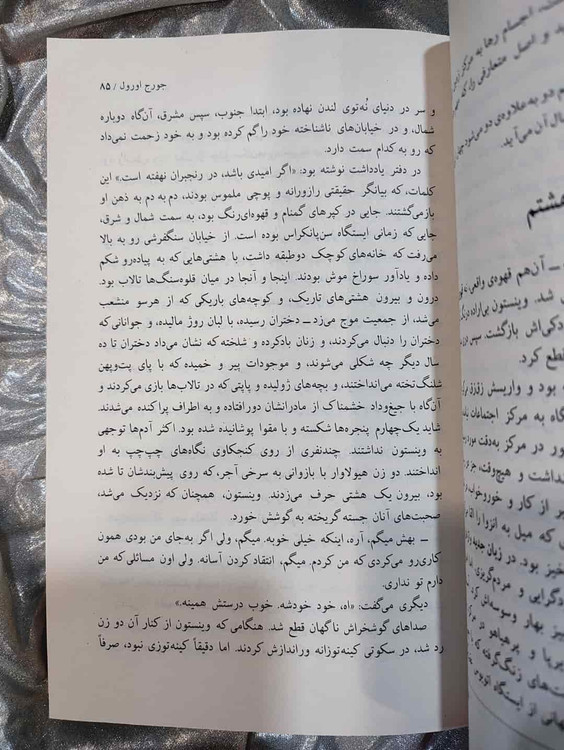 جورج اورول / ۸۵
و سر در دنیای تُه‌توی لندن نهاده بود، ابتدا جنوب، سپس مشرق، آن‌گاه دوباره
شمال، و در خیابان‌های ناشناخته خود را گم کرده بود و به خود زحمت نمی‌داد
که رو به کدام سمت دارد.
در دفتر یادداشت نوشته بود: «اگر امیدی باشد، در رنجبران نهفته است.» این
کلمات، که بیانگر حقیقتی رازورانه و پوچی ملموس بودند، دم به دم به ذهن او
بازمی‌گشتند. جایی در کپرهای گمنام و قهوه‌ای‌رنگ بود، به سمت شمال و شرق،
جایی که زمانی ایستگاه سن‌پانکراس بوده است. از خیابان سنگفرشی رو به بالا
می‌رفت که خانه‌های کوچک دوطبقه داشت، با هشتی‌هایی که به پیاده‌رو شکم
داده و یادآور سوراخ موش بودند. اینجا و آنجا در میان قلوه‌سنگ‌ها تالاب بود.
درون و بیرون هشتی‌های تاریک، و کوچه‌های باریکی که از هرسو منشعب
می‌شد، از جمعیت موج می‌زد ــ دختران رسیده، با لبان روژ مالیده، و جوانانی که
دختران را دنبال می‌کردند، و زنان بادکرده و شلخته که نشان می‌داد دختران تا ده
سال دیگر چه شکلی می‌شوند، و موجودات پیر و خمیده که با پای پت‌وپهن
شلنگ‌تخته می‌انداختند، و بچه‌های ژولیده و پاپتی که در تالاب‌ها بازی می‌کردند و
آن‌گاه با جیغ‌وداد خشمناک از مادرانشان دورافتاده و به اطراف پراکنده می‌شدند.
شاید یک‌چهارم پنجره‌ها شکسته و با مقوا پوشانیده شده بود. اکثر آدم‌ها توجهی
به وینستون نداشتند. چندنفری از روی کنجکاوی نگاه‌های چپ‌چپ به او
انداختند. دو زن هیولاوار با بازوانی به سرخی آجر، که روی پیش‌بندشان تا شده
بود، بیرون یک هشتی حرف می‌زدند. وینستون، همچنان که نزدیک می‌شد،
صحبت‌های آنان جسته گریخته به گوشش خورد.
ــ بهش میگم، آره، اینکه خیلی خوبه. میگم، ولی اگر به‌جای من بودی همون
کاری‌رو می‌کردی که من کردم. میگم، انتقاد کردن آسانه. ولی اون مسائلی‌که من
دارم تو نداری.
دیگری می‌گفت: «اه، خود خودشه. خوب درستش همینه.»
صداهای گوشخراش ناگهان قطع شد. هنگامی که وینستون از کنار آن دو زن
رد شد، در سکوتی کینه‌توزانه وراندازش کردند. اما دقیقاً کینه‌توزی نبود، صرفاً
هشتم
ــ آن‌هم قهوه‌ی واقعی
شد. وینستون بی‌اراده
دکی‌اش بازگشت سپس
قطع کرد.
بود و واریسش
گاه به مرکز اجتماعات
ور در مرکز به‌دقت
نداشت و هیچ‌وقت، جز
یر از کار و خوروخواب
که میل به انزوا را
خیز بود. در زبان جدید
دگرایی و مردم‌گریزی
نیز بهار وسوسه‌اش